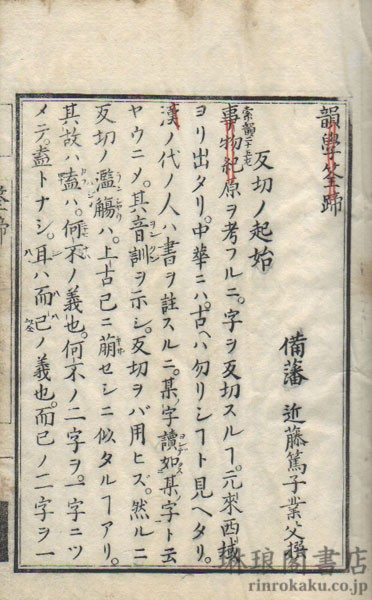 韻學筌蹄
備藩 近藤篤子業父撰
反切ノ起始
事物紀原ヲ考フルニ。字ヲ反切スルヿ。元來西域
ヨリ出タリ。中華ニハ。古ヘハ勿リシヿト見ヘタリ。
漢ノ代ノ人ハ書ヲ註スルニ。某ノ字讀如某字ト云
ヤウニメ。其音訓ヲ示シ。反切ヲバ用ヒズ。然ルニ
反切ノ濫觴ハ。上古已ニ萌セシニ似タルヿアリ。
其故ハ盍ハ。何不ノ義也。何不ノ二字ヲ。一字ニツ
メテ。盍トナシ。耳ハ而已ノ義也。而已ノ二字ヲ一
琳琅閣書店
rinrokaku.co.jp